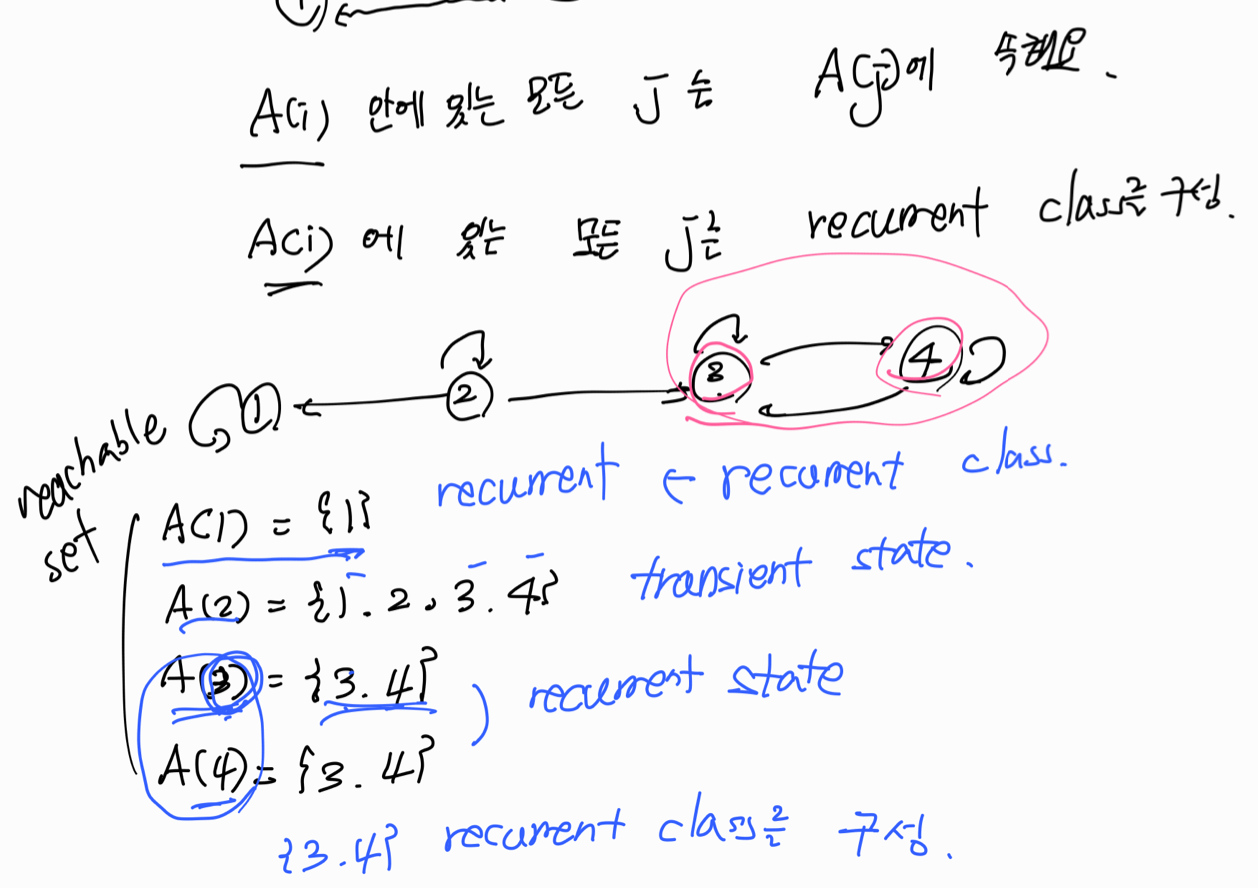 A(i) 안에 있는 모든 j 는 A(j)에 속해요.
A(i) 에 있는 모든 j는 recurrent class를 구성.
1 2 3 4
reachable set
A(1) = {1} recurrent ← recurrent class.
A(2) = {1. 2, 3. 4} transient state.
A(3) = {3. 4} ) recurrent state
A(4) = {3. 4}
{3.4} recurrent class를 구성.